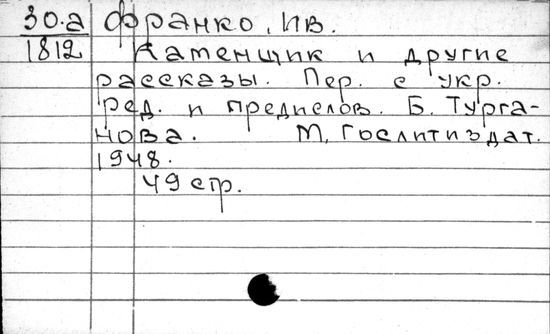 30.а Франко, Ив.
1812 Каменщик и другие
рассказы. Пер. с укр.
Ред. и предислов. Б. Турга-
нова. М, Гослитиздат.
1948.
49 стр.